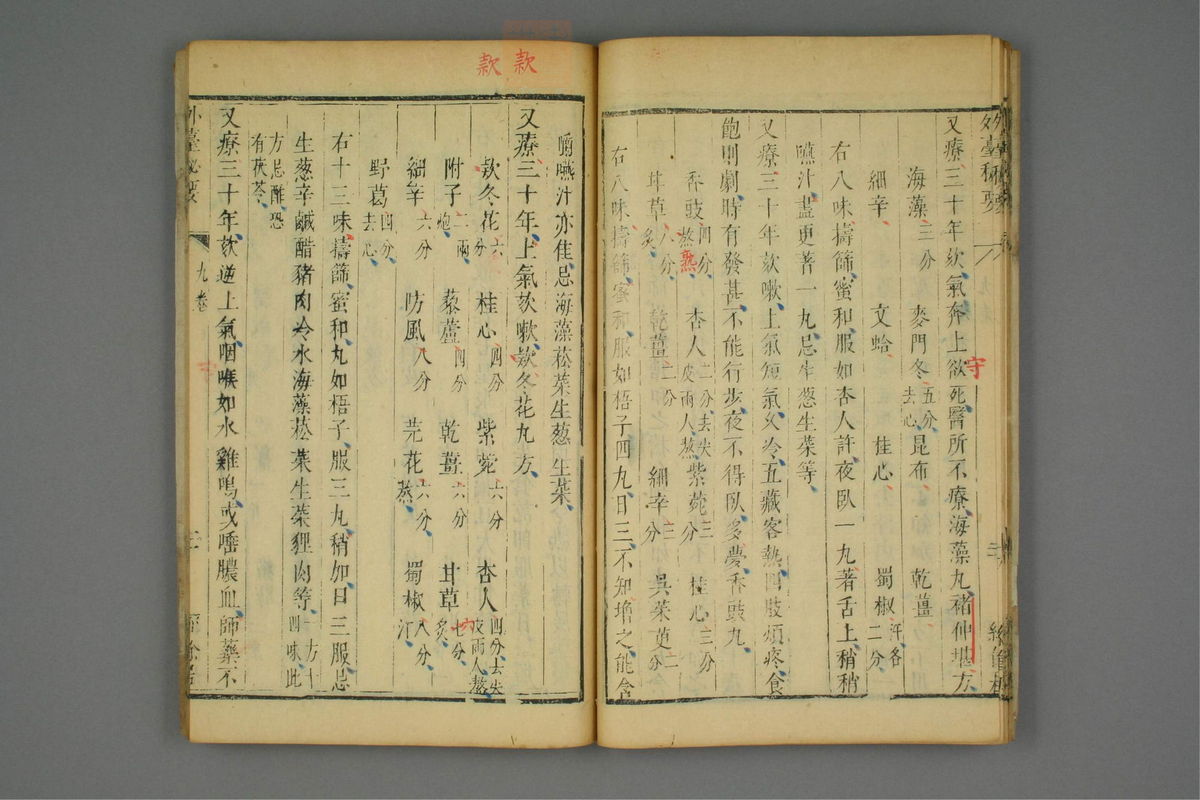 外臺秘要
又療三十年欬氣奔上欲死醫所不療海藻丸禇仲堪方
海藻三分 麥門冬五分去心 昆布 乾薑
細辛 文蛤 桂心 蜀椒汗各二分
右八味擣篩蜜和服如杏人許夜臥一丸著舌上稍稍
嚥汁盡更著一丸忌生葱生菜等
又療三十年欬嗽上氣短氣久冷五藏客熱四肢煩疼食
飽則劇時有發甚不能行步夜不得臥多夢香豉丸
香豉四分熬 杏人二分去尖皮兩人熬 紫菀三分 桂心三分
甘草八分炙 乾薑二分 細辛三分 吳茱萸二分
右八味擣篩蜜和服如梧子四丸日三不知增之能食
嚼嚥汁亦佳忌海藻菘菜生葱生菜
又療三十年上氣欬嗽欵冬花丸方
欵冬花六分 桂心四分 紫菀六分 杏人四分去尖皮兩人熬
附子二兩炮 藜蘆四分 乾薑六分 甘草七分炙
細辛六分 防風八分 芫花六分蒸 蜀椒八分汗
野葛四分去心
右十三味擣篩蜜和丸如梧子服三丸稍加日三服忌
生葱辛鹹醋豬肉冷水海藻菘菜生菜貍肉等一方十四味此
方忌酢恐有茯苓
又療三十年欬逆上氣咽喉如水雞鳴或唾膿血師藥不
外臺秘要
九卷
款
款
熟
守